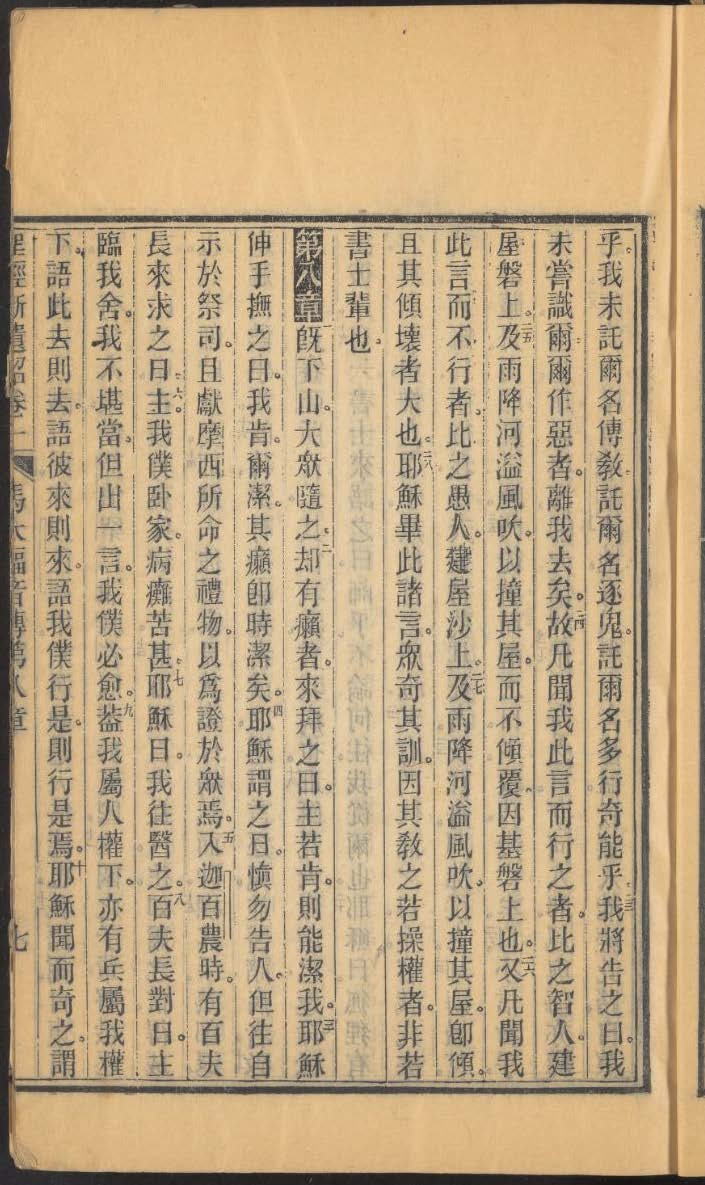 乎。我未託爾名傳敎、託爾名逐鬼。託爾名多行奇能乎。二三我將告之曰。我
未嘗識爾、爾作惡者。離我去矣。二四故凡聞我此言而行之者。比之智人。建
屋磐上。二五及雨降河溢風吹。以撞其屋。而不傾覆。因基磐上也。二六又凡聞我
此言而不行者。比之愚人。建屋沙上。二七及雨降河溢風吹。以撞其屋。卽傾。
且其傾壞者大也。二八耶穌畢此諸言。衆奇其訓。因其敎之若操權者。非若
書士輩也。
第八章一旣下山。大衆隨之。二却有癩者。來拜之曰。主若肯。則能潔我。三耶穌
伸手撫之曰。我肯。爾潔。其癩卽時潔矣。四耶穌謂之曰。愼勿告人。但往自
示於祭司。且獻摩西所命之禮物。以爲證於衆焉。五入迦百農時。有百夫
長來求之曰。六主。我僕卧家。病癱苦甚。七耶穌曰。我往醫之。八百夫長對曰。主
臨我舍。我不堪當。但出一言。我僕必愈。九葢我屬人權下。亦有兵屬我權
下。語此去則去。語彼來則來。語我僕行是。則行是焉。十耶穌聞而奇之。謂
聖經新遺詔卷一 馬太福音傳第八章 七